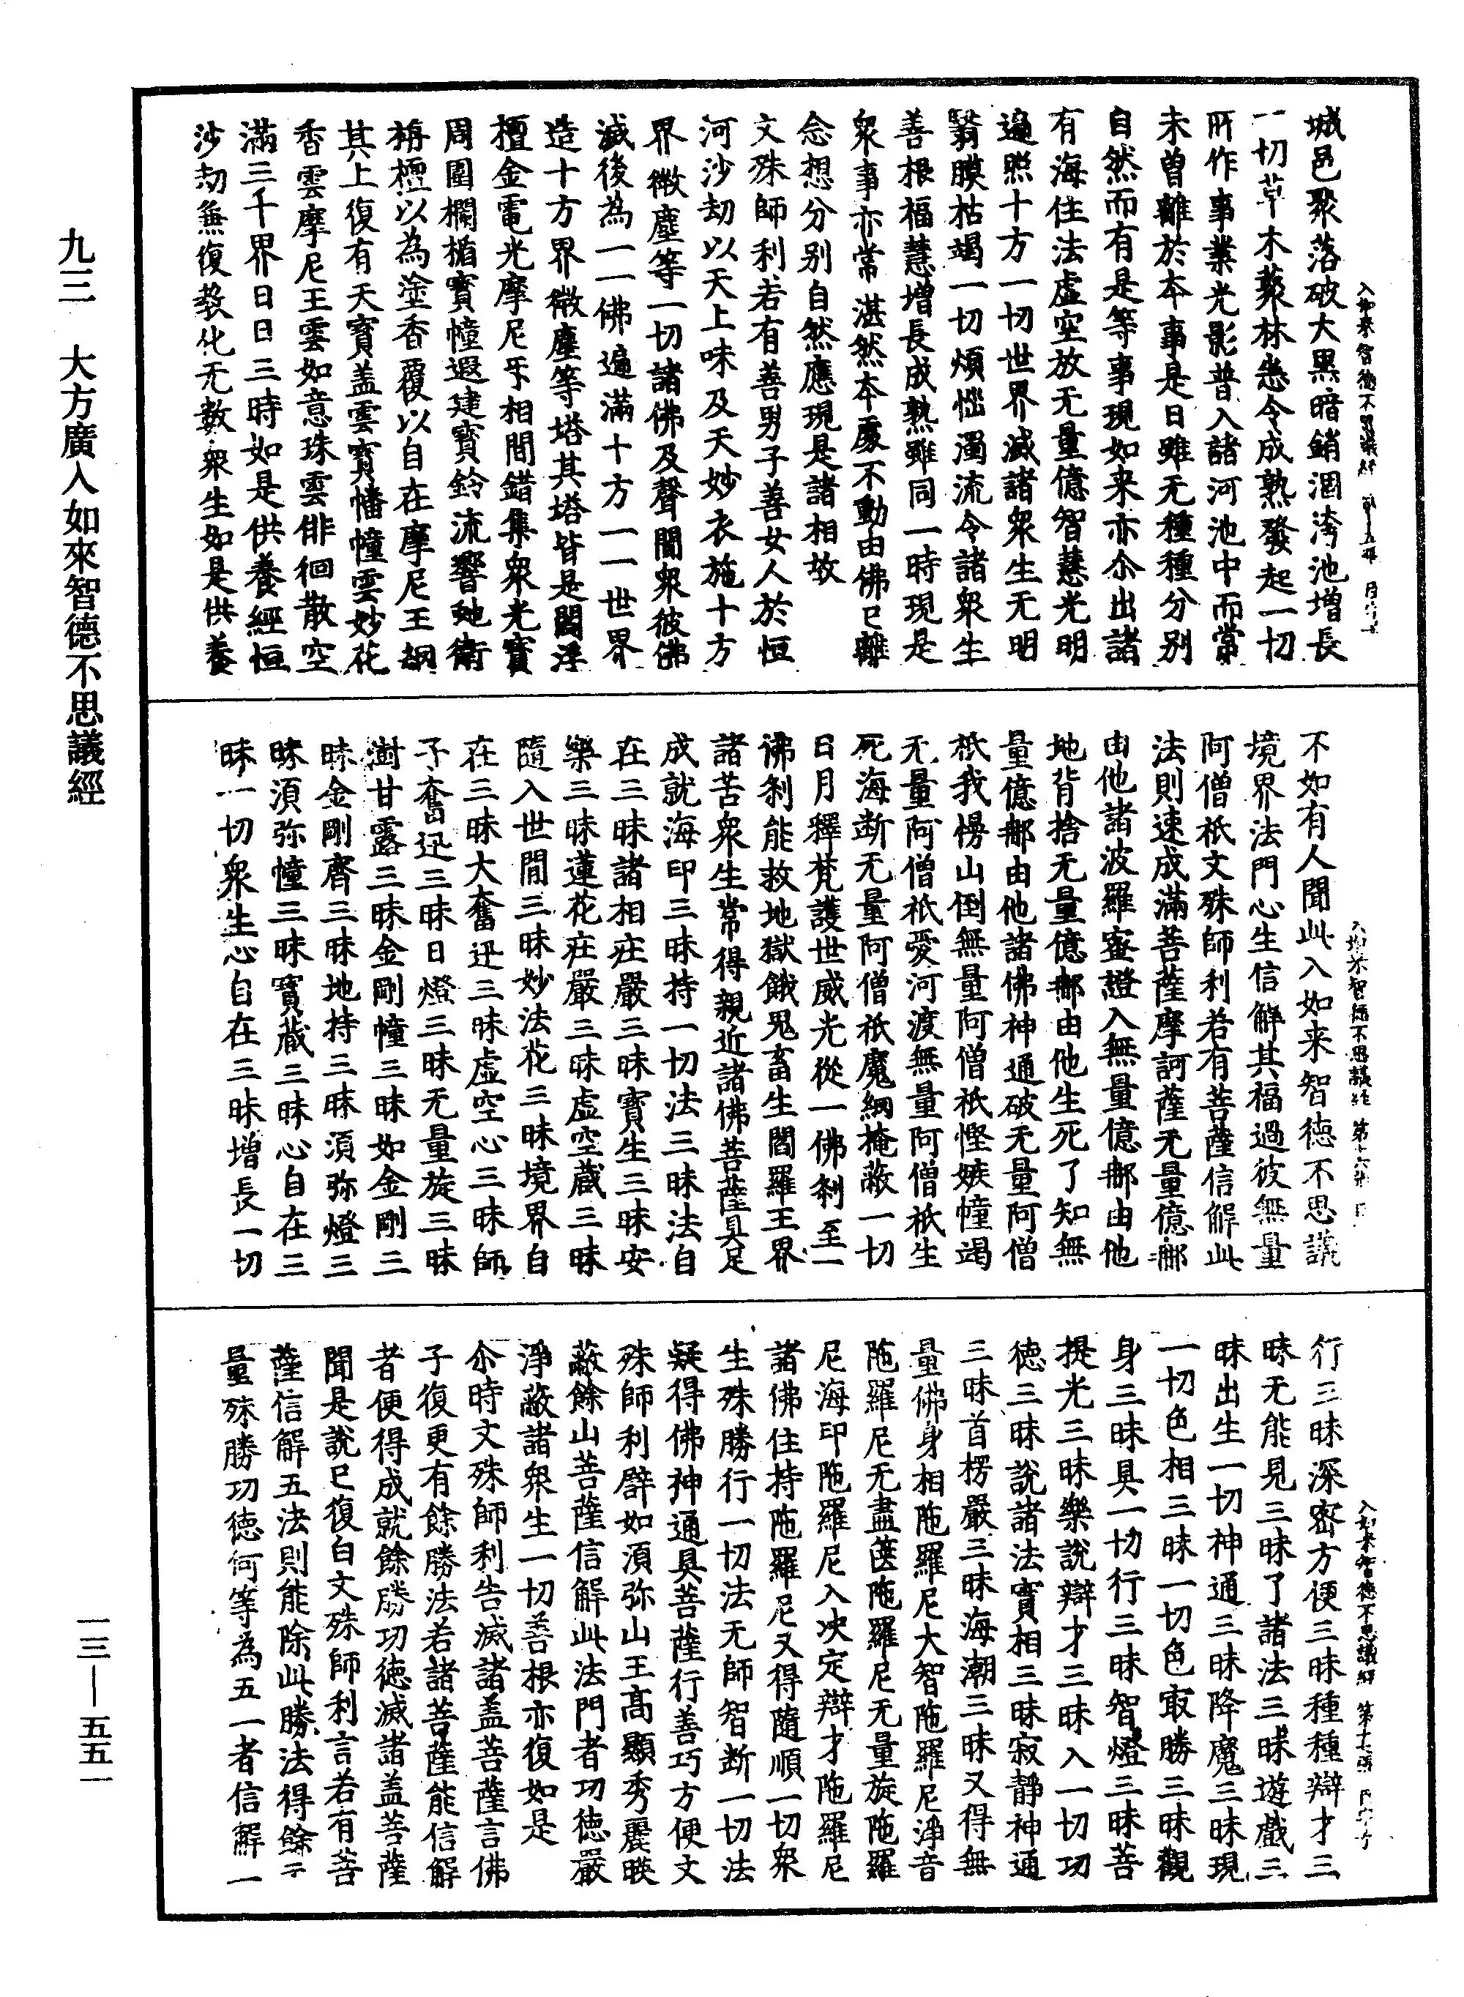 九三　大方廣入如來智德不思議經
一三—五五一
城邑聚落破大黑暗銷涸洿池增長
一切草木藂林悉令成熟發起一切
所作事業光影普入諸河池中而常
未曾離於本事是日雖无種種分别
自然而有是等事現如来亦尒出諸
有海住法虛空放无量億智慧光明
遍照十方一切世界滅諸衆生无明
翳膜枯竭一切煩惱濁流令諸衆生
善根福慧增長成熟雖同一時現是
衆事亦常湛然本處不動由佛已離
念想分别自然應現是諸相故
文殊師利若有善男子善女人於恒
河沙劫以天上味及天妙衣施十方
界微塵等一切諸佛及聲聞衆彼佛
滅後為一一佛遍滿十方一一世界
造十方界微塵等塔其塔皆是閻浮
檀金電光摩尼㸦相間錯集衆光寶
周圍欄楯寶幢遐建寶鈴流響虵衛
栴檀以為塗香覆以自在摩尼王網
其上復有天寶盖雲寶幡幢雲妙花
香雲摩尼王雲如意珠雲俳徊散空
滿三千界日日三時如是供養經恒
沙劫無復教化无數衆生如是供養
入如來智德不思議經
不如有人聞此入如来智德不思議
境界法門心生信解其福過彼無量
阿僧祇文殊師利若有菩薩信解此
法則速成滿菩薩摩訶薩无量億那
由他諸波羅蜜證入無量億那由他
地背捨无量億那由他生死了知無
量億那由他諸佛神通破无量阿僧
祇我慢山倒無量阿僧祇慳嫉幢竭
无量阿僧祇愛河渡無量阿僧祇生
死海断无量阿僧祇魔網掩蔽一切
日月釋梵護世威光從一佛刹至一
佛刹能救地獄餓鬼畜生閻羅王界
諸苦衆生常得親近諸佛菩薩具足
成就海印三昧持一切法三昧法自
在三昧諸相庄嚴三昧寶生三昧安
樂三昧蓮花庄嚴三昧虛空藏三昧
隨入世間三昧妙法花三昧境界自
在三昧大奮迅三昧虛空心三昧師
子奮迅三昧日燈三昧无量旋三昧
澍甘露三昧金剛幢三昧如金剛三
昧金剛齊三昧地持三昧須弥燈三
昧須弥幢三昧寶藏三昧心自在三
昧一切衆生心自在三昧增長一切
入如来智德不思議經　第十六張
行三昧深密方便三昧種種辯才三
昧无能見三昧了諸法三昧遊戲三
昧出生一切神通三昧降魔三昧現
一切色相三昧一切色㝡勝三昧觀
身三昧具一切行三昧智燈三昧菩
提光三昧樂說辯才三昧入一切功
徳三昧說諸法實相三昧寂靜神通
三昧首楞嚴三昧海潮三昧又得無
量佛身相陁羅尼大智陁羅尼淨音
陁羅尼无盡篋陁羅尼无量旋陁羅
尼海印陁羅尼入决定辯才陁羅尼
諸佛住持陁羅尼又得隨順一切衆
生殊勝行一切法无師智断一切法
疑得佛神通具菩薩行善巧方便文
殊師利辟如須弥山王高顯秀麗暎
蔽餘山菩薩信解此法門者功徳嚴
淨蔽諸衆生一切善根亦復如是
尒時文殊師利告滅諸盖菩薩言佛
子復更有餘勝法若諸菩薩能信解
者便得成就餘勝功徳滅諸盖菩薩
聞是說已復白文殊師利言若有菩
薩信解五法則能除此勝法得餘无
量殊勝功徳何等為五一者信解一
入如来智德不思議經　第十七張